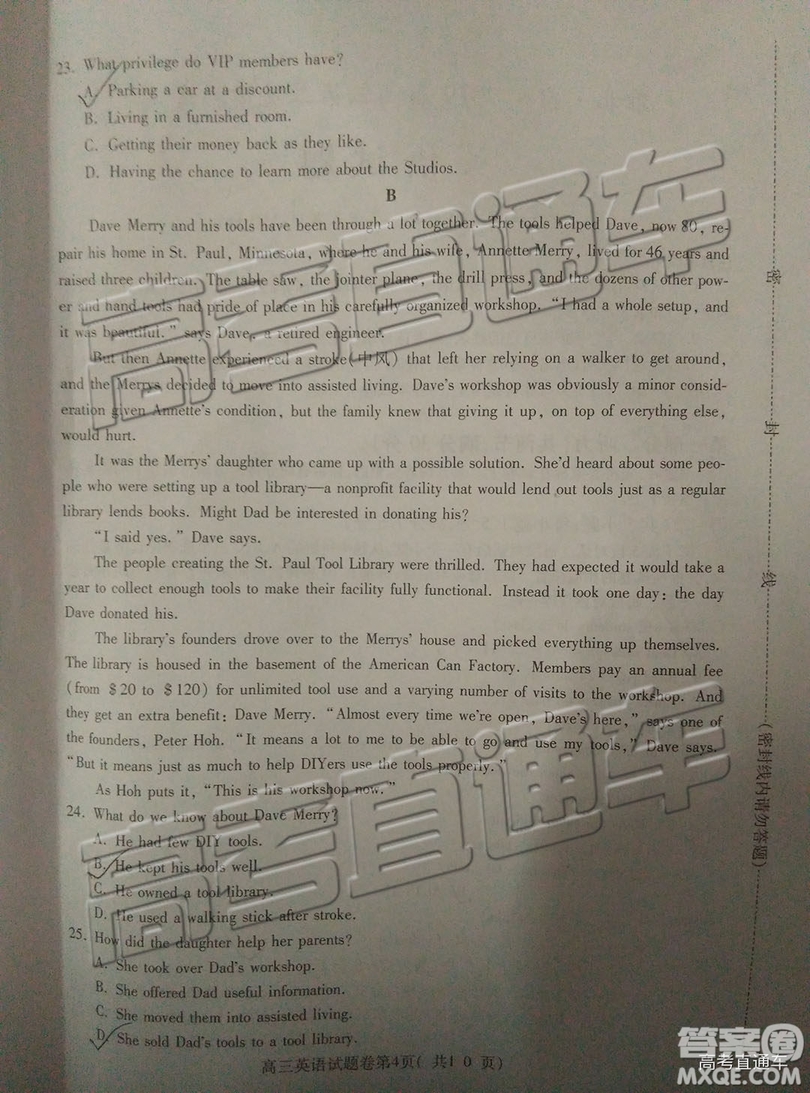 23. What privilege do VIP members have?
A. Parking a car at a discount.
B. Living in a furnished room.
C. Getting their money back as they like.
D. Having the chance to learn more about the Studios.
B
Dave Merry and his tools have been through a lot together. The tools helped Dave, now 80, re-
pair his home in St. Paul, Minnesota, where he and his wife, Annette Merry, lived for 46 years and
raised three children. The table saw, the jointer plane, the drill press, and the dozens of other pow-
er and hand tools had pride of place in his carefully organized workshop. “I had a whole setup, and
it was beautiful.” says Dave, a retired engineer.
But then Annette experienced a stroke(中风) that left her relying on a walker to get around,
and the Merrys decided to move into assisted living. Dave's workshop was obviously a minor consid-
eration given Annette's condition, but the family knew that giving it up, on top of everything else,
would hurt.
It was the Merrys' daughter who came up with a possible solution. She'd heard about some peo-
ple who were setting up a tool library—a nonprofit facility that would lend out tools just as a regular
library lends books. Might Dad be interested in donating his?
“I said yes.” Dave says.
The people creating the St. Paul Tool Library were thrilled. They had expected it would take a
year to collect enough tools to make their facility fully functional. Instead it took one day: the day
Dave donated his.
The library's founders drove over to the Merrys' house and picked everything up themselves.
The library is housed in the basement of the American Can Factory. Members pay an annual fee
(from $20 to $120) for unlimited tool use and a varying number of visits to the workshop. And
they get an extra benefit: Dave Merry. “Almost every time we're open, Dave's here,” says one of
the founders, Peter Hoh. “It means a lot to me to be able to go and use my tools,” Dave says.
“But it means just as much to help DIYers use the tools properly.”
As Hoh puts it, “This is his workshop now.”
24. What do we know about Dave Merry?
A. He had few DIY tools.
B. He kept his tools well.
C. He owned a tool library.
D. He used a walking stick after stroke.
25. How did the daughter help her parents?
A. She took over Dad's workshop.
B. She offered Dad useful information.
C. She moved them into assisted living.
D. She sold Dad's tools to a tool library.
高三英语试题卷第4页( 共1 0 页)
密 封 线 (密封线内请勿答题)
高考直通车
高考直通车
高考直通车
答案圈
MXQE.COM